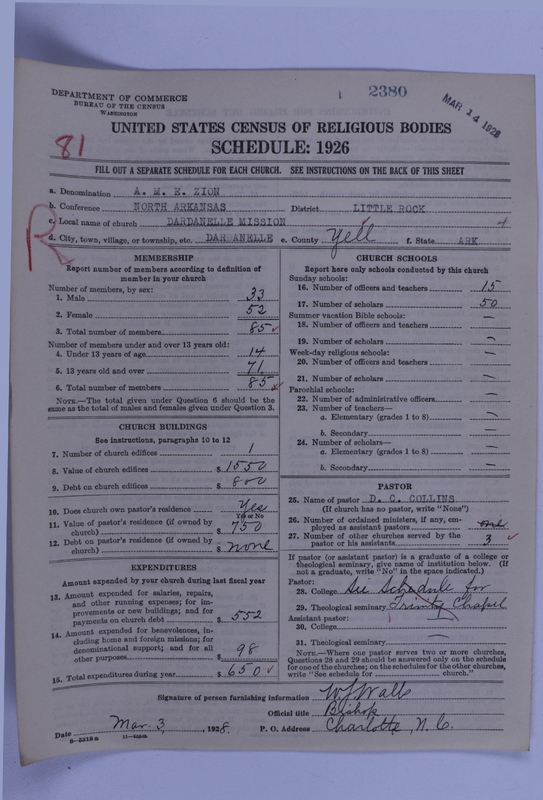 DEPARTMENT OF COMMERCE
BUREAU OF THE CENSUS
WASHINGTON
2380
MAR 14 1928
81
UNITED STATES CENSUS OF RELIGIOUS BODIES
SCHEDULE: 1926
FILL OUT A SEPARATE SCHEDULE FOR EACH CHURCH. SEE INSTRUCTIONS ON THE BACK OF THIS SHEET
a. Denomination A. M. E. ZION
b. Conference NORTH ARKANSAS District LITTLE ROCK
c. Local name of church DARDANELLE MISSION
R
d. City, town, village, or township, etc. DARDANELLE e. County Yell f. State ARK
MEMBERSHIP
Report number of members according to definition of
member in your church
Number of members, by sex:
1. Male 33
2. Female 52
3. Total number of members 85
Number of members under and over 13 years old:
4. Under 13 years of age 14
5. 13 years old and over 71
6. Total number of members 85
NOTE.—The total given under Question 6 should be
same as the total of males and females given under Question 3.
CHURCH BUILDINGS
See instructions, paragraphs 10 to 12
7. Number of church edifices 1
8. Value of church edifices $ 1550
9. Debt on church edifices $ 800
10. Does church own pastor's residence? Yes
Yes or No
11. Value of pastor's residence (if owned by
church) $ 750
12. Debt on pastor's residence (if owned by
church) $ none
EXPENDITURES
Amount expended by your church during last fiscal year
13. Amount expended for salaries, repairs,
and other running expenses; for im-
provements or new buildings; and for
payments on church debt $ 552
14. Amount expended for benevolences, in-
cluding home and foreign missions; for
denominational support; and for all
other purposes $ 98
15. Total expenditures during year $ 650
CHURCH SCHOOLS
Report here only schools conducted by this church
Sunday schools:
16. Number of officers and teachers 15
17. Number of scholars 50
Summer vacation Bible schools:
18. Number of officers and teachers —
19. Number of scholars —
Week-day religious schools:
20. Number of officers and teachers —
21. Number of scholars —
Parochial schools:
22. Number of administrative officers —
23. Number of teachers—
a. Elementary (grades 1 to 8) —
b. Secondary —
24. Number of scholars—
a. Elementary (grades 1 to 8) —
b. Secondary —
PASTOR
25. Name of pastor D. C. COLLINS
(If church has no pastor, write "None")
26. Number of ordained ministers, if any, em-
ployed as assistant pastors
27. Number of other churches served by the
pastor or his assistants 3
If pastor (or assistant pastor) is a graduate of a college or
theological seminary, give name of institution below. (If
not a graduate, write "No" in the space indicated.)
Pastor:
28. College See Schedule for
29. Theological seminary Trinity Chapel
Assistant pastor:
30. College
31. Theological seminary
NOTE.—Where one pastor serves two or more churches,
Questions 28 and 29 should be answered only on the schedule
for one of the churches; on the schedules for the other churches,
write "See schedule for church."
Signature of person furnishing information W. J. Walls
Official title Bishop
Date Mar. 3, 1928. P. O. Address Charlotte, N. C.